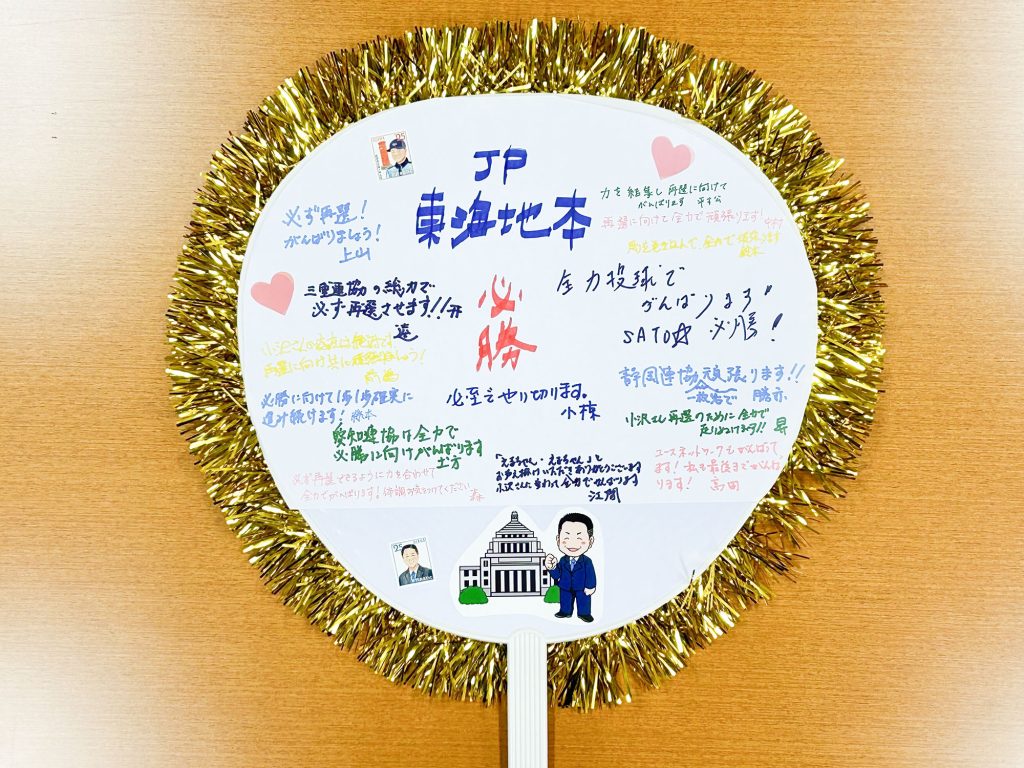 JP
東海地本
必ず再選!
がんばりましょう!
上山
力を結集し再選に向けて
がんばります
再選に向けて全力で頑張ります!
三重連協の総力で
必ず再選させます!!
必勝
全力投球で
がんばります
SATO 必勝!
再選に向け共に頑張りましょう!
必勝に向けて1歩1歩確実に
進み続けます! 藤本
必至でやり切ります。
静岡連協頑張ります!!
一致団結で
小沢さん再選のために全力で
走りぬけます!! 昇
愛知連協は全力で
必勝に向けがんばります
土方
必ず再選できるように力を合わせて
全力でがんばります!体調お気をつけてください 森
お声掛けいただきありがとうございます
小沢さんと
全力でがんばります
江間
ユースネットワークもがんばって
ます!私も最後までがんば
ります! 高田